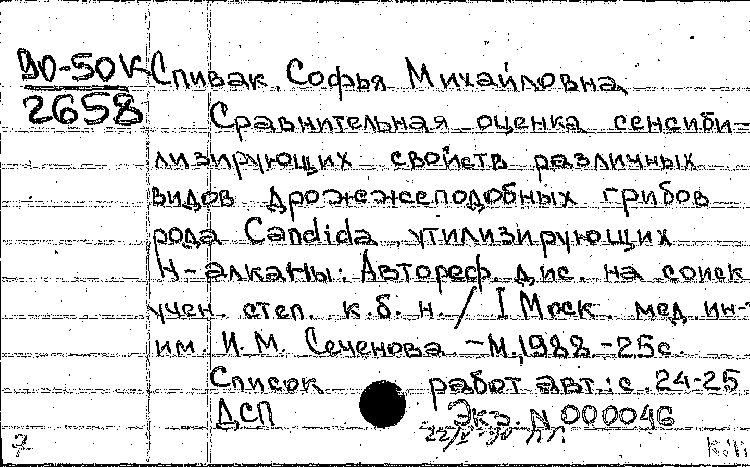 90-50К
2658
Спивак Софья Михайловна
Сравнительная оценка сенсиби-
лизирующих свойств различных
видов дрожжеподобных грибов
рода Candida, утилизирующих
Н-алканы: Автореф. дис. на соиск
учен. степ. к.б.н. / I Моск. мед. ин-т
им. И.М. Сеченова. -М., 1988. -25с.
Список работ авт.: с. 24-25
ДСП Экз. N 000046
7